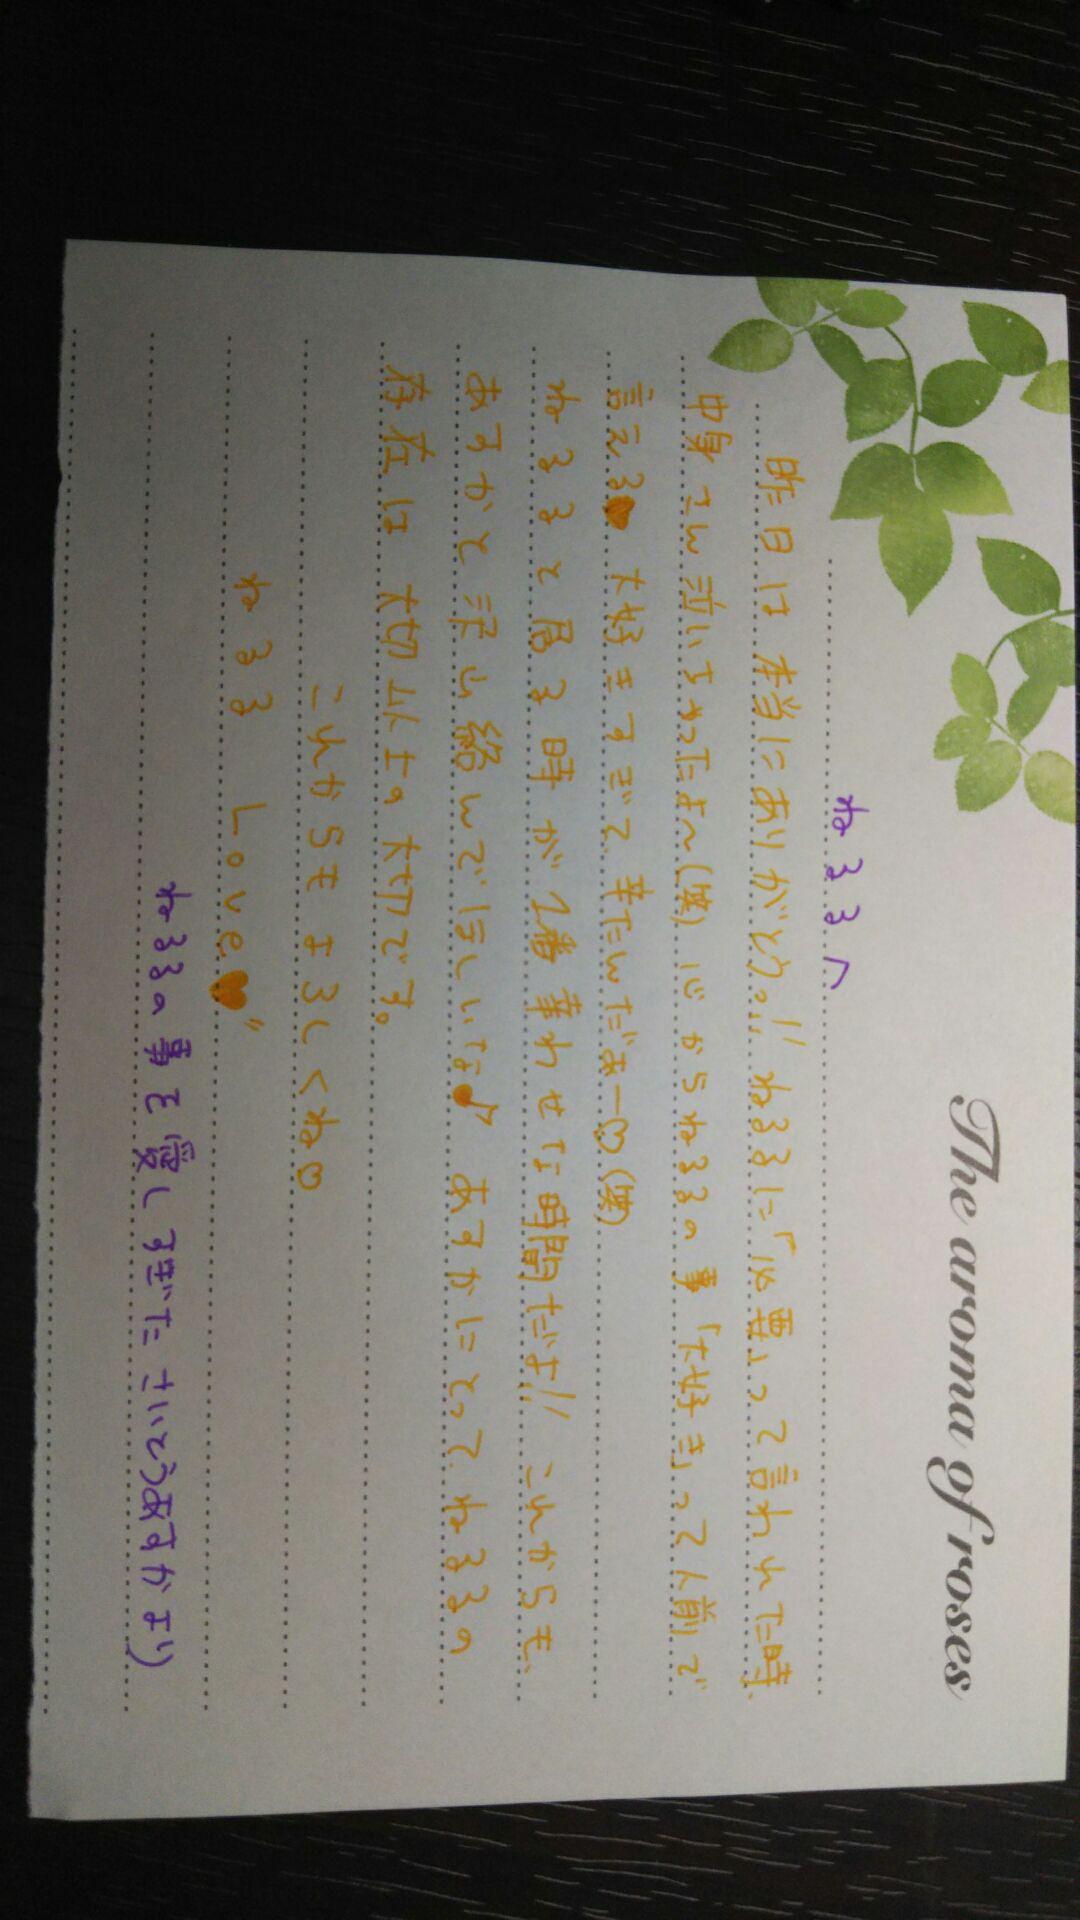 The aroma of roses
ねるるへ
昨日は本当にありがとう!! ねるるに「必要」って言われた時、
中身さん泣いちゃったよ〜(笑) 心からねるるの事「大好き」って人前で
言える♥ 大好きすぎて幸たんだぁー♡(笑)
ねるると居る時が1番幸わせな時間だよ!! これからも、
あすかと沢山絡んでほしいな♪ あすかにとってねるるの
存在は大切以上の大切です。
これからもよろしくね♡
ねるる Love♥"
ねるるの事を愛しすぎた さいとうあすかより